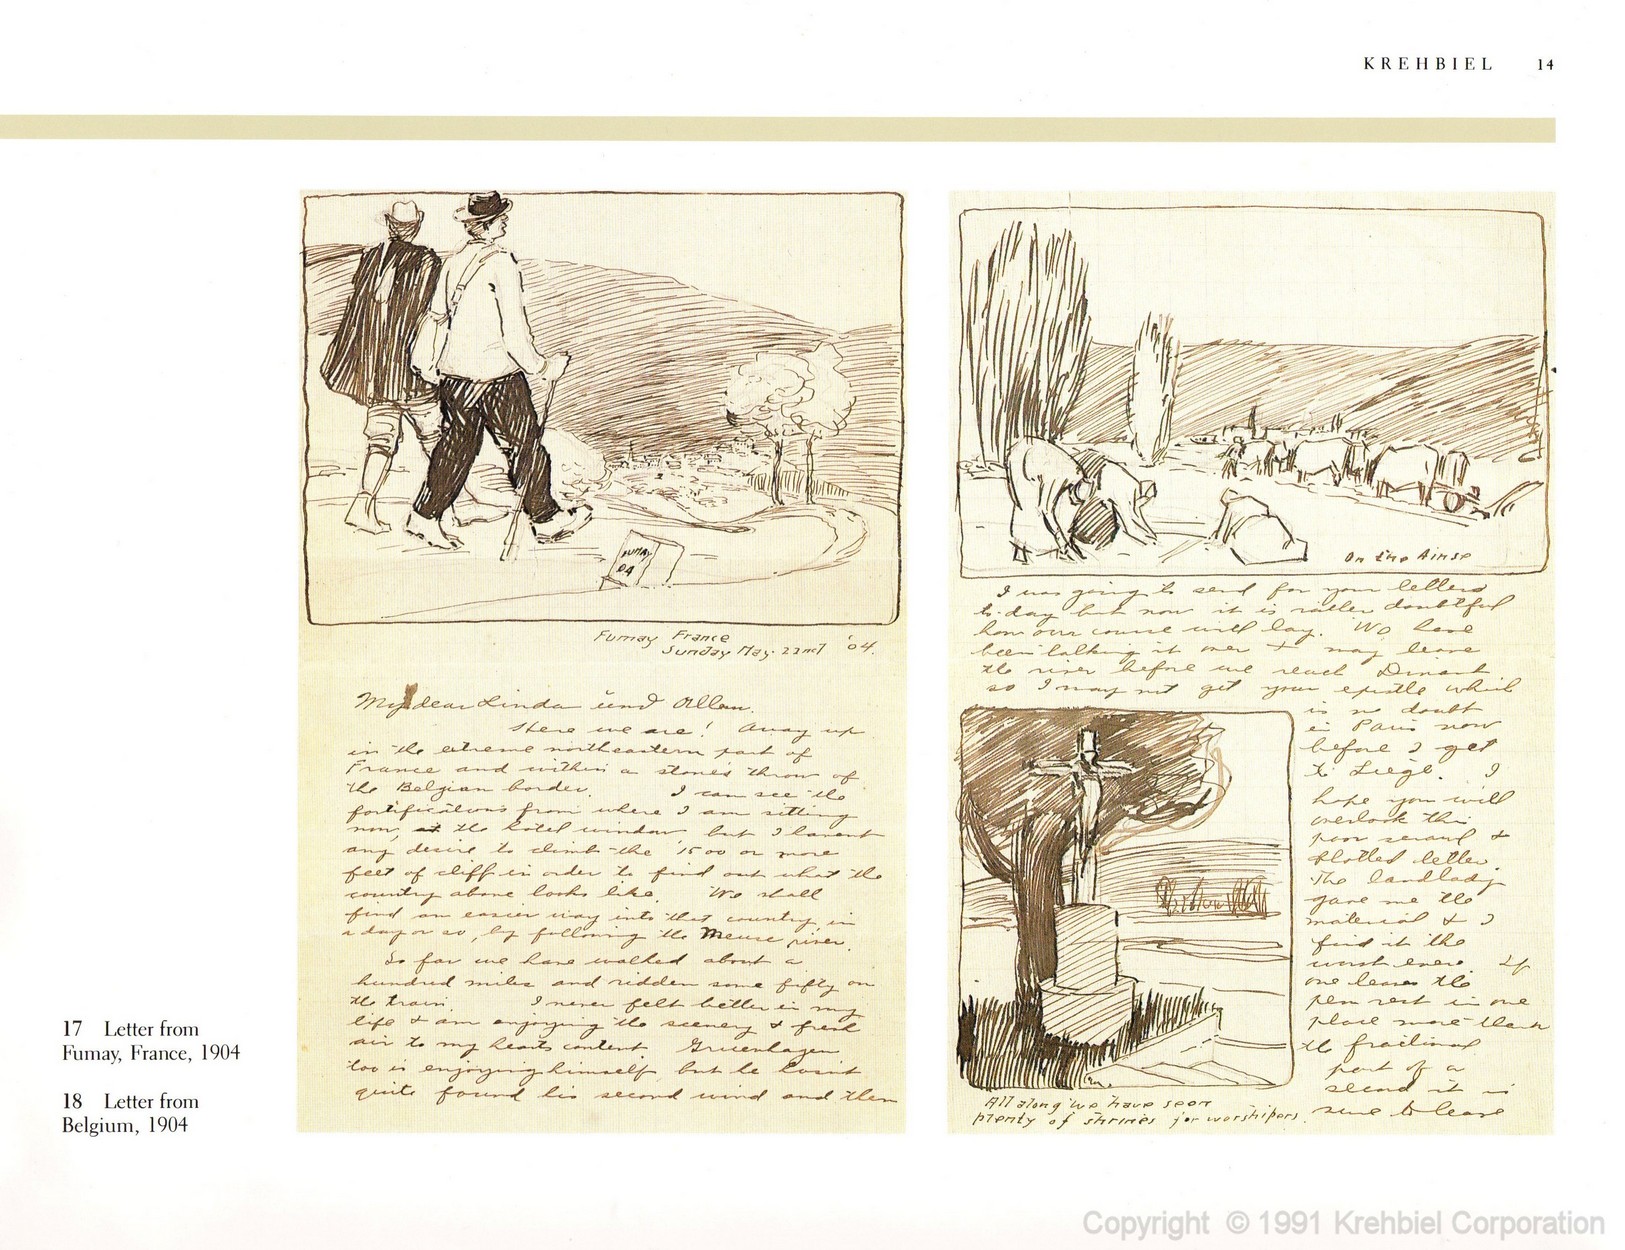 KREHBIEL 14
FUMAY
04
Fumay France
Sunday May. 22nd '04.
My dear Linda und Allan.
Here we are! Away up
in the extreme northeastern part of
France and within a stone's throw of
the Belgian border. I can see the
fortifications from where I am sitting
now, at the hotel window but I havent
any desire to climb the 1500 or more
feet of cliff in order to find out what the
country above looks like. We shall
find an easier way into that country in
a day or so, by following the Meuse river.
So far we have walked about a
hundred miles and ridden some fifty on
the train. I never felt better in my
life & am enjoying the scenery & fresh
air to my hearts content. Gruenhagen
too is enjoying himself but he hasnt
quite found his second wind and then
On the Ainse
I was going to send for your letters
to-day but now it is rather doubtful
how our course will lay. We have
been talking it over & may leave
the river before we reach Dinant
so I may not get your epistle which
is no doubt
in Paris now
before I get
to Liège. I
hope you will
overlook this
poor scrawl &
blotted letter.
The landlady
gave me the
material & I
find it the
worst ever. If
one leaves the
pen rest in one
place more than
the fractional
part of a
second it is
sure to leave
All along we have seen
plenty of shrines for worshipers.
17 Letter from
Fumay, France, 1904
18 Letter from
Belgium, 1904
Copyright © 1991 Krehbiel Corporation